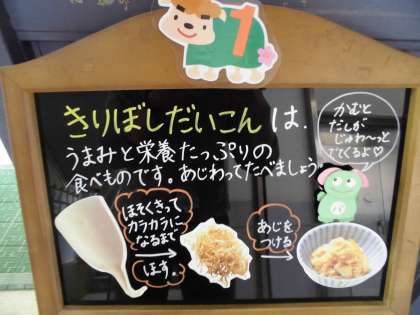 1
きりぼしだいこんは、
うまみと栄養たっぷりの
食べものです。あじわってたべましょう
かむと
だしが
じゅわ〜っと
でてくるよ♡
ほそくきって
カラカラに
なるまで
ほす。
あじを
つける